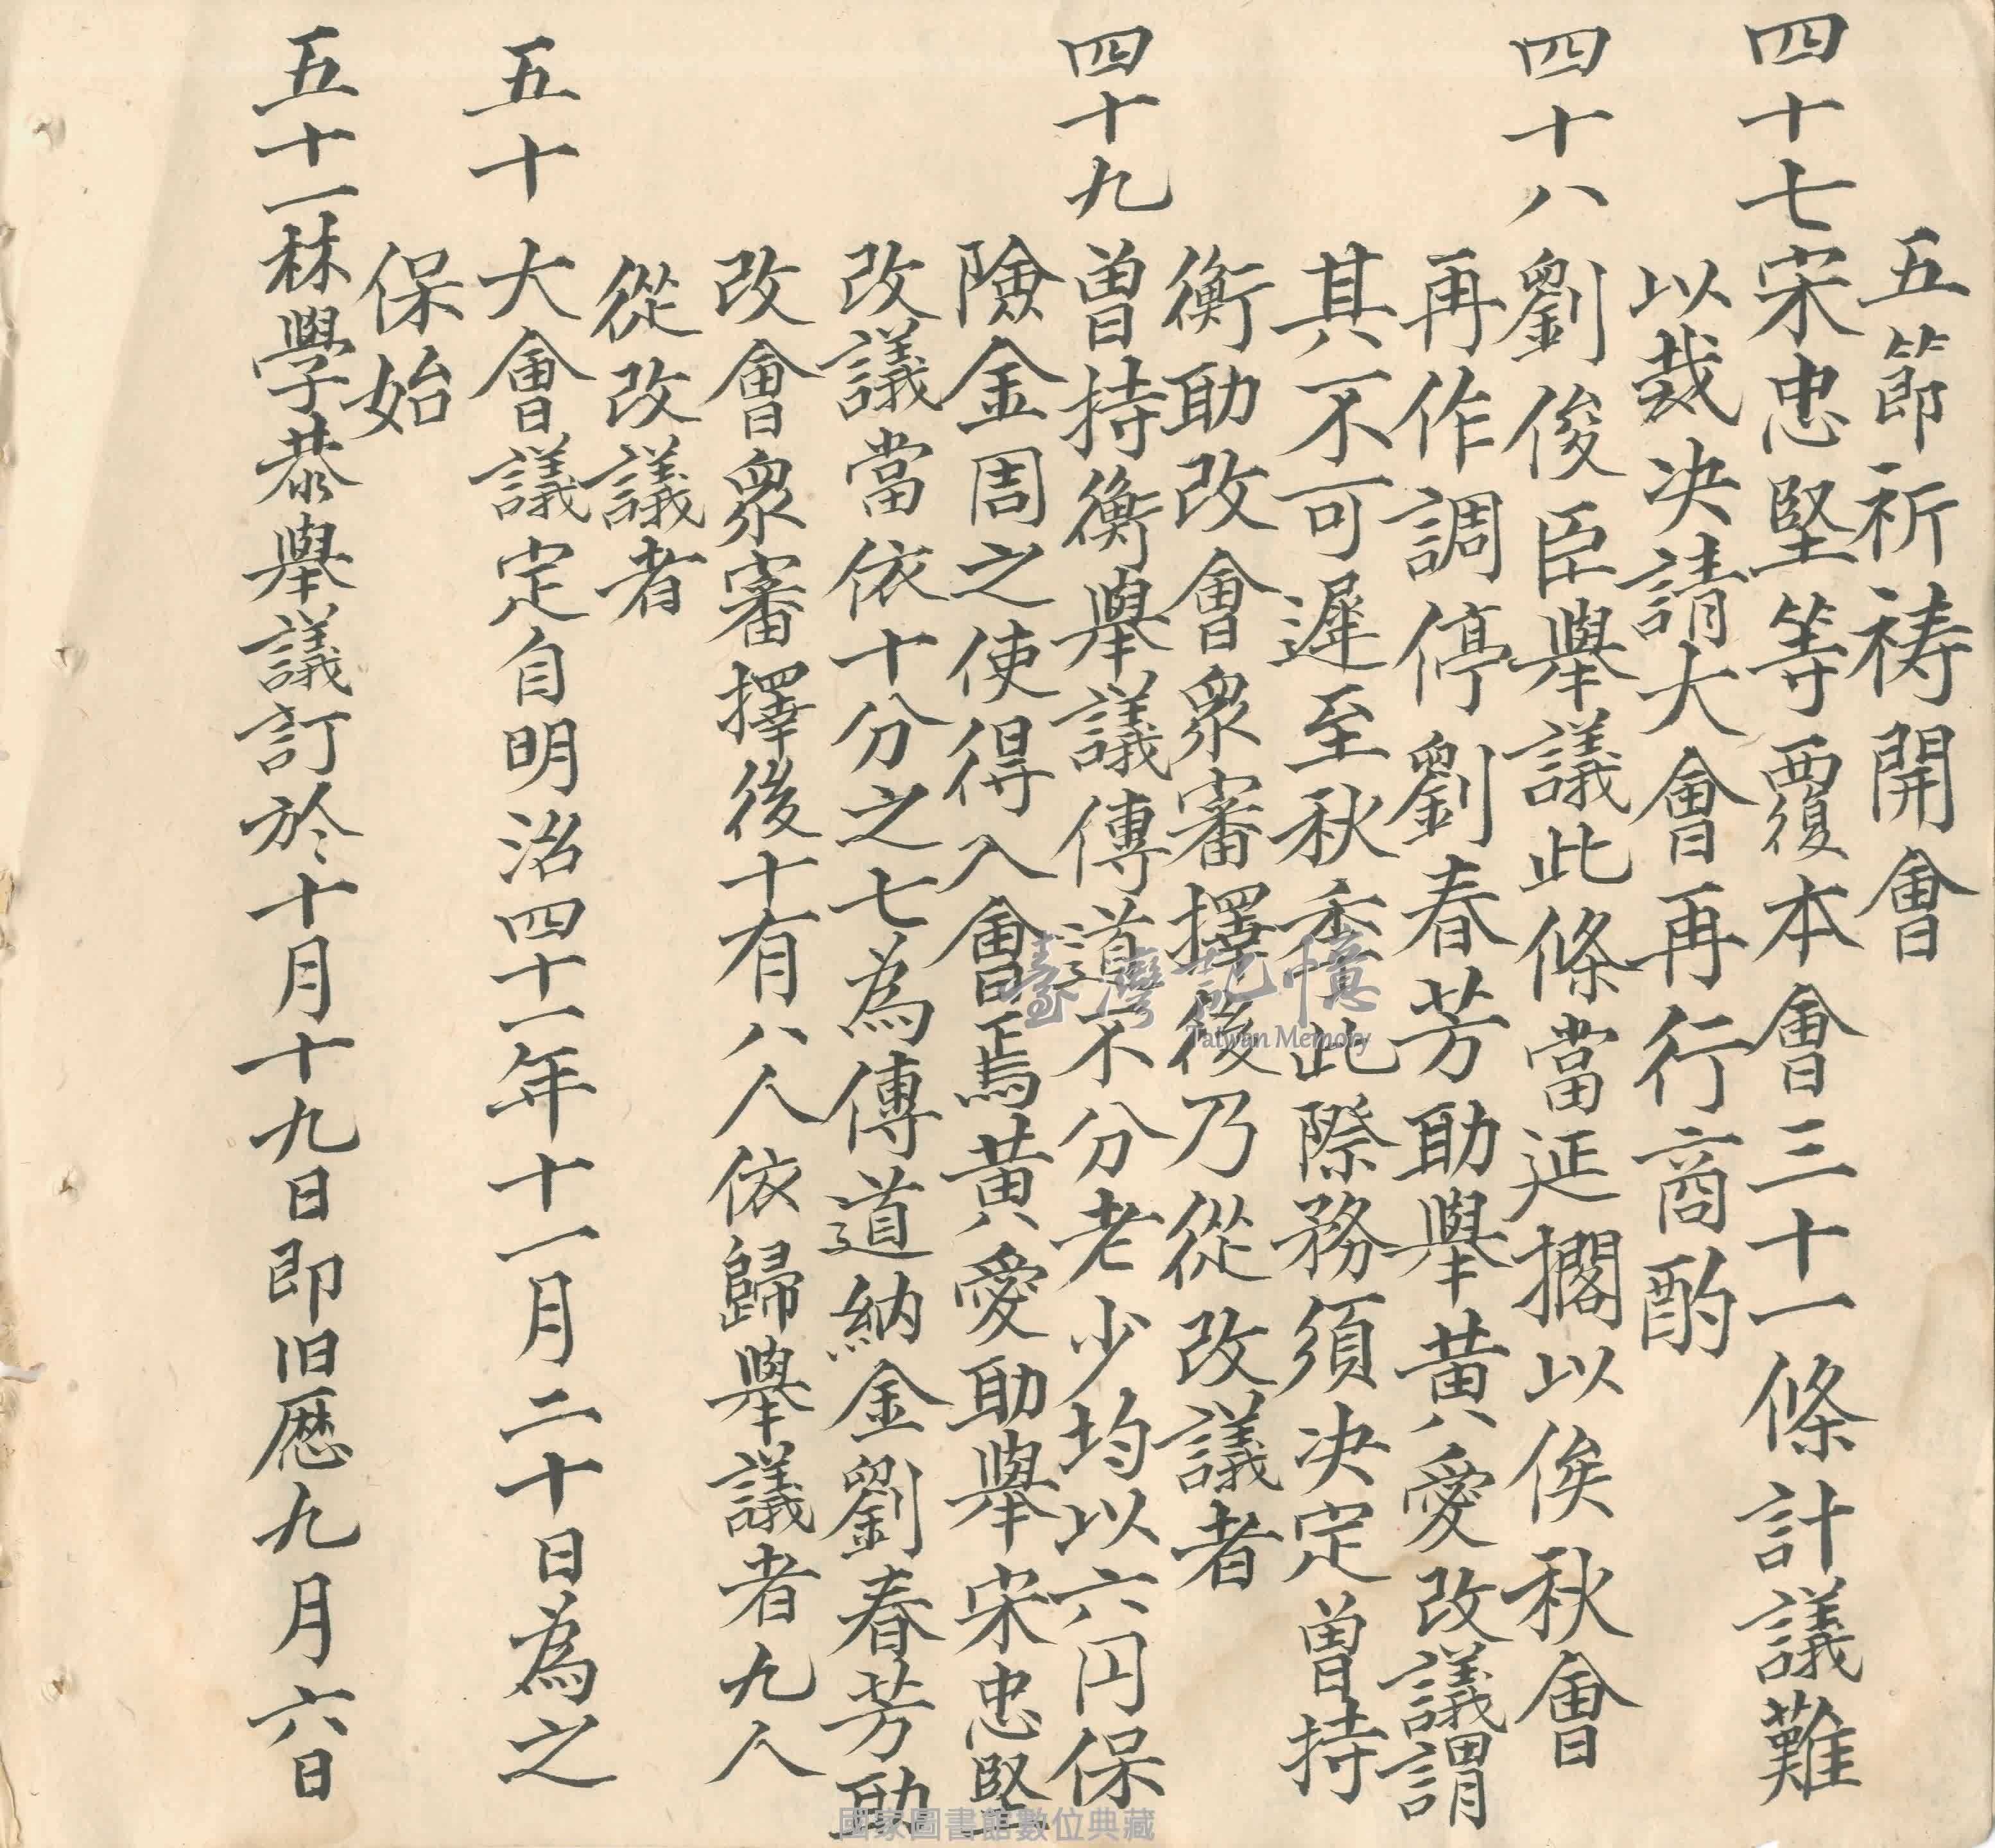 五節祈禱開會
四十七宋忠堅等覆本會三十一條計議難
以裁决請大會再行商酌
四十八劉俊臣舉議此條當延擱以俟秋會
再作調停劉春芳助舉黃愛改議謂
其不可遲至秋季此際務須决定曾持
衡助改會眾審擇後乃從改議者
四十九曾持衡舉議傳道不分老少均以六円保
險金周之使得入會焉黃愛助舉宋忠堅
改議當依十分之七為傳道納金劉春芳助
改會眾審擇後十有八人依歸舉議者九人
從改議者
五十 大會議定自明治四十一年十一月二十日為之
保始
五十一林學恭舉議訂於十月十九日即旧曆九月六日
臺灣記憶
Taiwan Memory
國家圖書館數位典藏